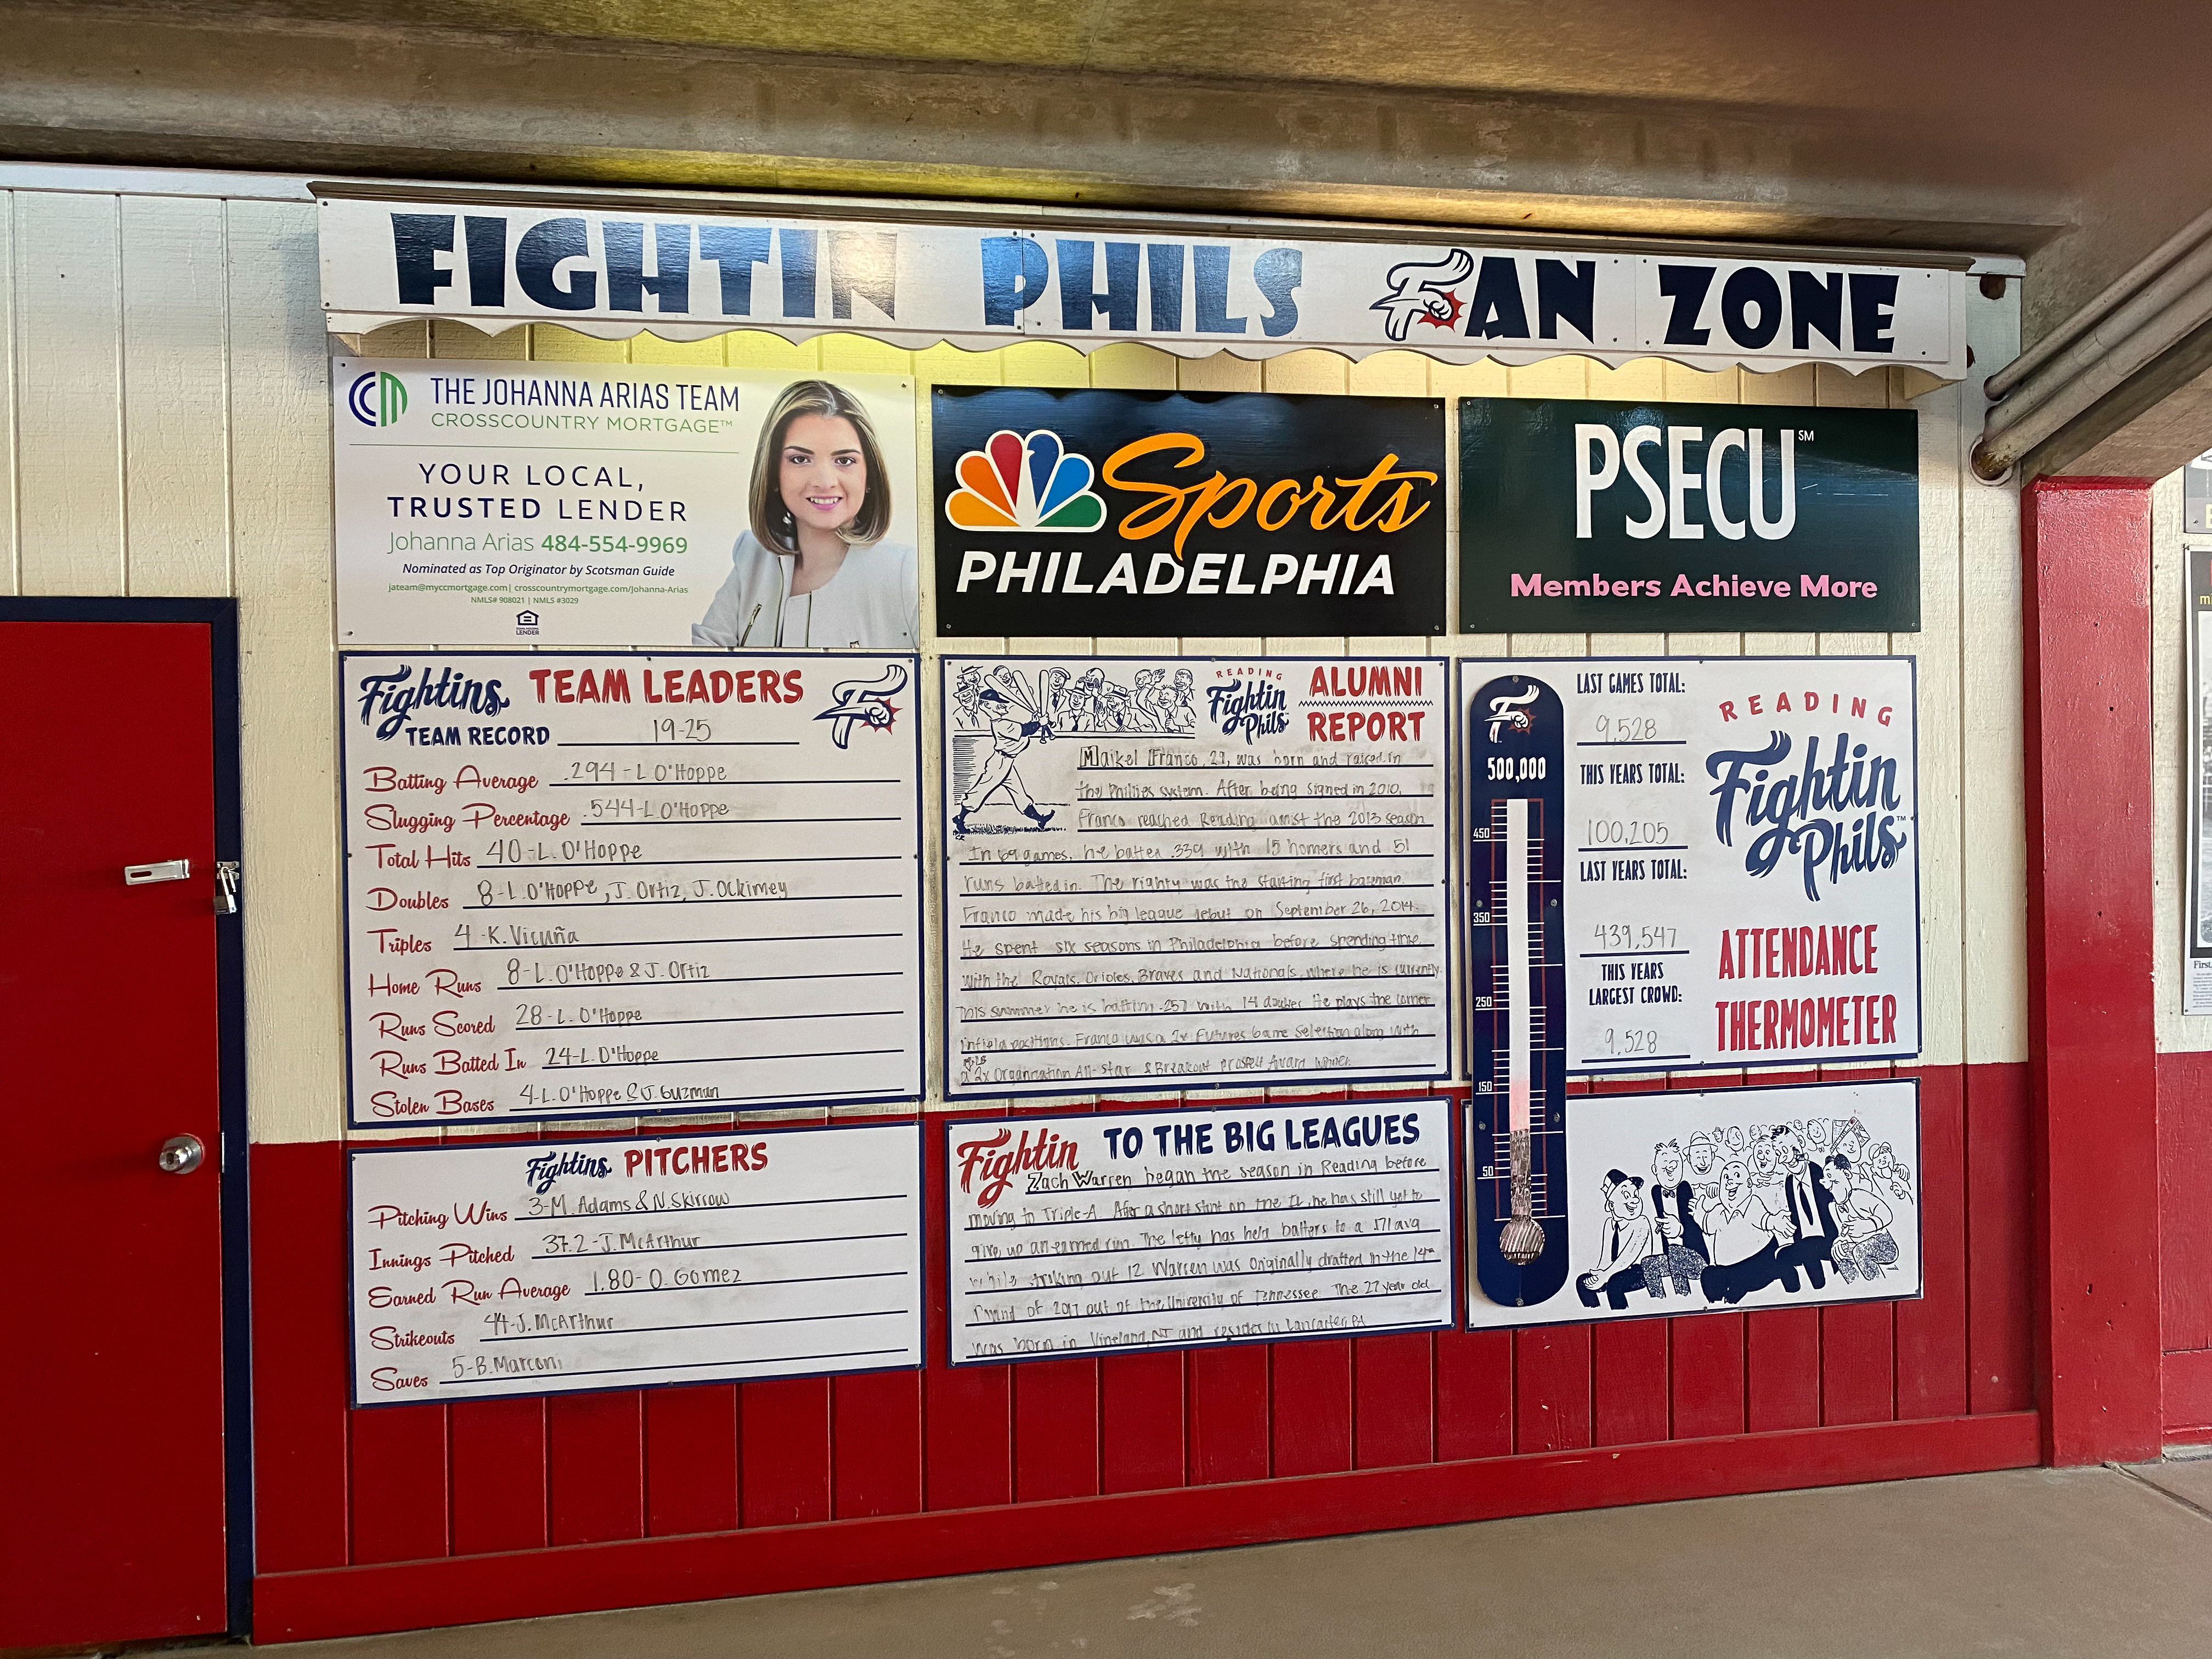 FIGHTIN PHILS FAN ZONE
CM THE JOHANNA ARIAS TEAM
CROSSCOUNTRY MORTGAGE™
YOUR LOCAL,
TRUSTED LENDER
Johanna Arias 484-554-9969
Nominated as Top Originator by Scotsman Guide
jateam@myccmortgage.com| crosscountrymortgage.com/Johanna-Arias
NMLS# 908021 | NMLS #3029
LENDER
Sports
PHILADELPHIA
PSECU SM
Members Achieve More
Fightins TEAM LEADERS F
TEAM RECORD 19-25
Batting Average .294-L O'Hoppe
Slugging Percentage .544-L O'Hoppe
Total Hits 40-L. O'Hoppe
Doubles 8-L. O'Hoppe, J. Ortiz, J. Ockimey
Triples 4-K. Vicuña
Home Runs 8-L. O'Hoppe & J. Ortiz
Runs Scored 28-L. O'Hoppe
Runs Batted In 24-L. O'Hoppe
Stolen Bases 4-L. O'Hoppe & J. Guzman
Fightins PITCHERS
Pitching Wins 3-M. Adams & N. Skirrow
Innings Pitched 37.2-J. McArthur
Earned Run Average 1.80-O. Gomez
Strikeouts 44-J. McArthur
Saves 5-B. Marconi
READING
Fightin
Phils
ALUMNI
REPORT
Maikel Franco, 29, was born and raised in
the Phillies system. After being signed in 2010,
Franco reached Reading amist the 2013 season
In 69 games, he batted .339 with 15 homers and 51
runs batted in. The righty was the starting first baseman.
Franco made his big league debut on September 26, 2014.
He spent six seasons in Philadelphia before spending time
with the Royals, Orioles, Braves and Nationals, where he is currently.
This summer he is batting .257 with 14 doubles. He plays the corner
infield positions. Franco was a 2x Futures Game Selection along with
2x Organization All-star & Breakout Prospect Award winner.
Fightin TO THE BIG LEAGUES
Zach Warren began the season in Reading before
moving to Triple-A. After a short stint on the IL, he has still yet to
give up an earned run. The lefty has held batters to a .171 avg
while striking out 12. Warren was originally drafted in the 14th
round of 2017 out of the University of Tennessee. The 27 year old
was born in Vineland, NJ and resides in Lancaster, PA
F
500,000
450
350
250
150
50
LAST GAMES TOTAL:
9,528
THIS YEARS TOTAL:
100,205
LAST YEARS TOTAL:
439,547
THIS YEARS
LARGEST CROWD:
9,528
READING
Fightin
Phils™
ATTENDANCE
THERMOMETER